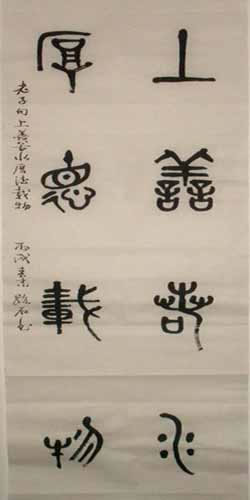 上善若水
厚悳載物
老子句上善若水厚德載物
丙戌